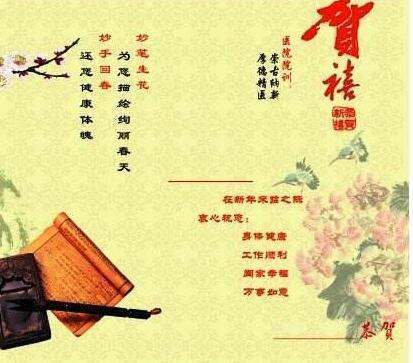 贺禧
医院院训:
崇古纳新
厚德精医
妙笔生花
为您描绘绚丽春天
妙手回春
还您健康体魄
在新年来临之际
衷心祝您:
身体健康
工作顺利
阖家幸福
万事如意
恭贺